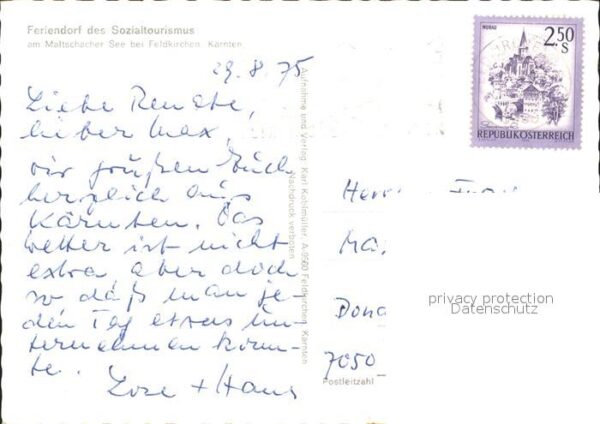 Feriendorf des Sozialtourismus
am Maltschacher See bei Feldkirchen, Kärnten
29.8.75
Liebe Renate,
lieber Max,
wir grüßen Euch
herzlich aus
Kärnten. Das
Wetter ist nicht
extra aber doch
so daß man je-
den Tag etwas un-
ternehmen konn-
te.
Lore + Hans
Aufnahme und Verlag: Karl Kohlmüller, A-9560 Feldkirchen, Kärnten
Nachdruck verboten
MURAU
2.50
S
REPUBLIK ÖSTERREICH
Herr
Ma
Dona
7050
Postleitzahl
privacy protection
Datenschutz